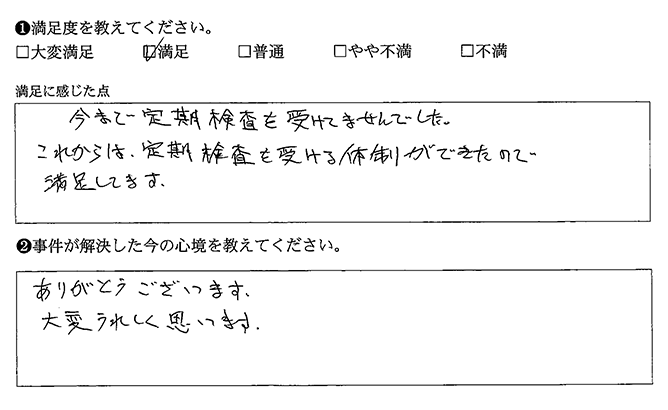 ❶満足度を教えてください。
□大変満足 ☑満足 □普通 □やや不満 □不満
満足に感じた点
今まで定期検査を受けてませんでした。
これからは、定期検査を受ける体制ができたので
満足してます。
❷事件が解決した今の心境を教えてください。
ありがとうございます。
大変うれしく思います。